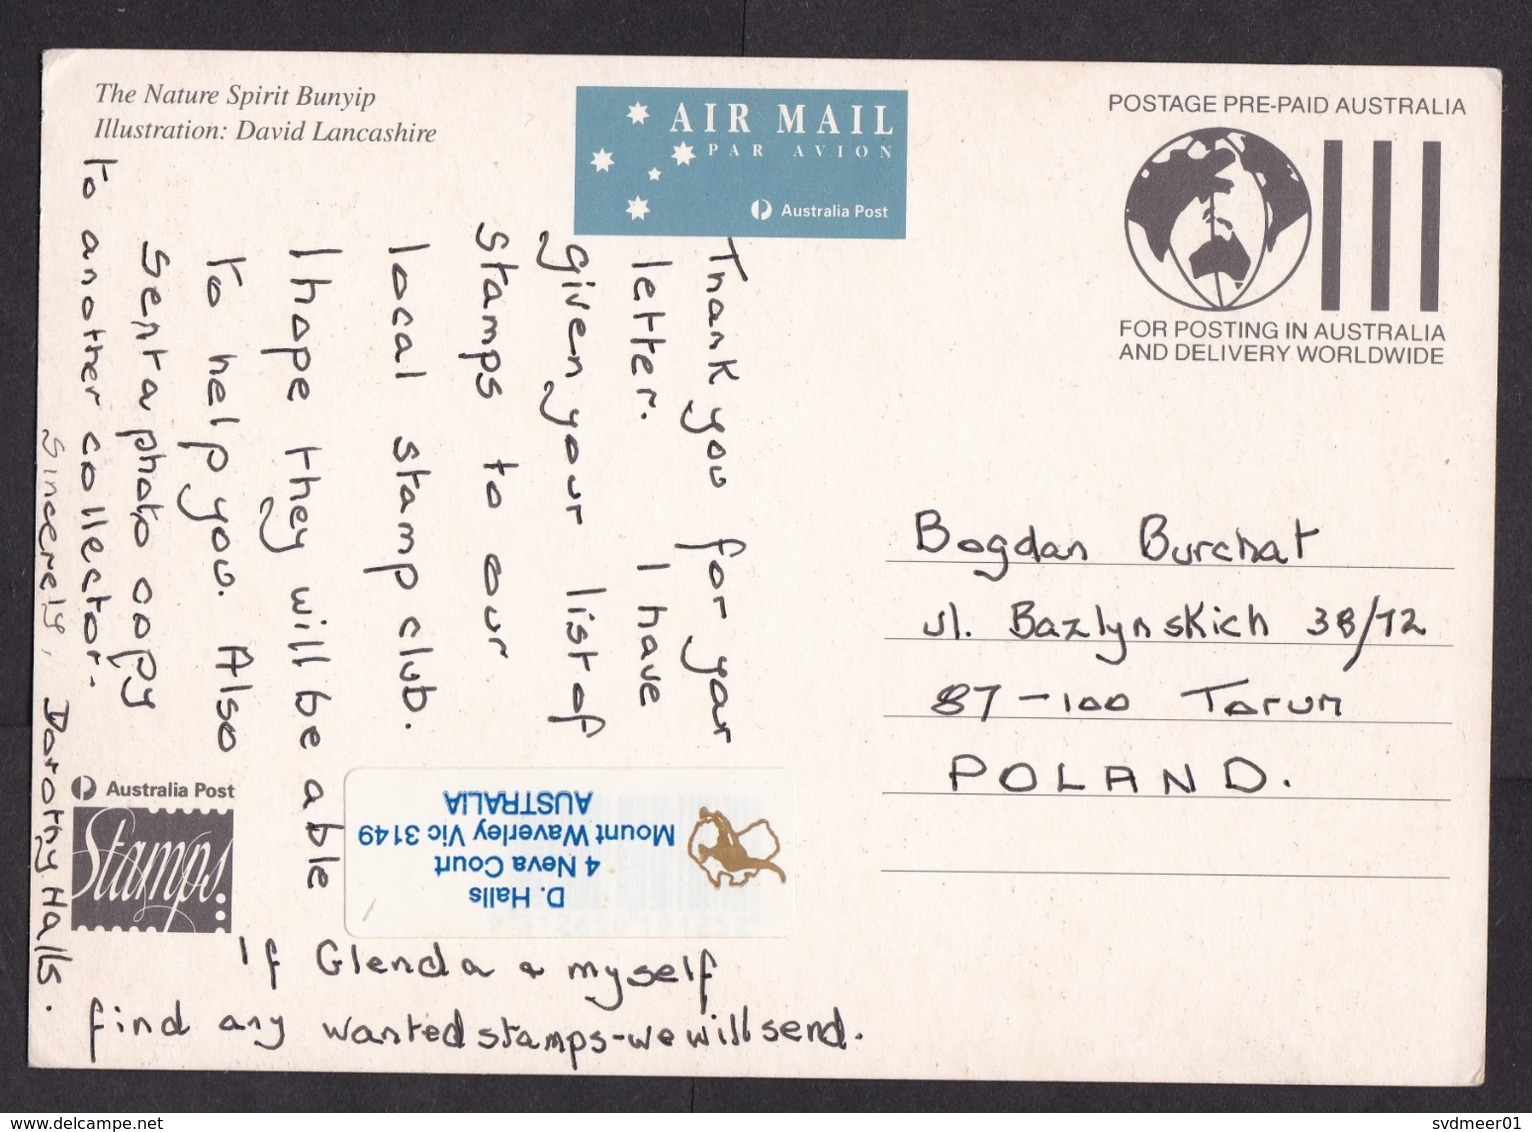 The Nature Spirit Bunyip
Illustration: David Lancashire
AIR MAIL
PAR AVION
Australia Post
POSTAGE PRE-PAID AUSTRALIA
FOR POSTING IN AUSTRALIA
AND DELIVERY WORLDWIDE
Thank you for your
letter. I have
given your list of
stamps to our
local stamp club.
I hope they will be able
to help you. Also
sent a photo copy
to another collector.
Sincerely, Dorothy Halls.
If Glenda & myself
find any wanted stamps-we will send.
Bogdan Burchat
ul. Bazlynskich 38/72
87-100 Torun
POLAND.
D. Halls
4 Neva Court
Mount Waverley Vic 3149
AUSTRALIA
Australia Post
Stamps
svdmeer01